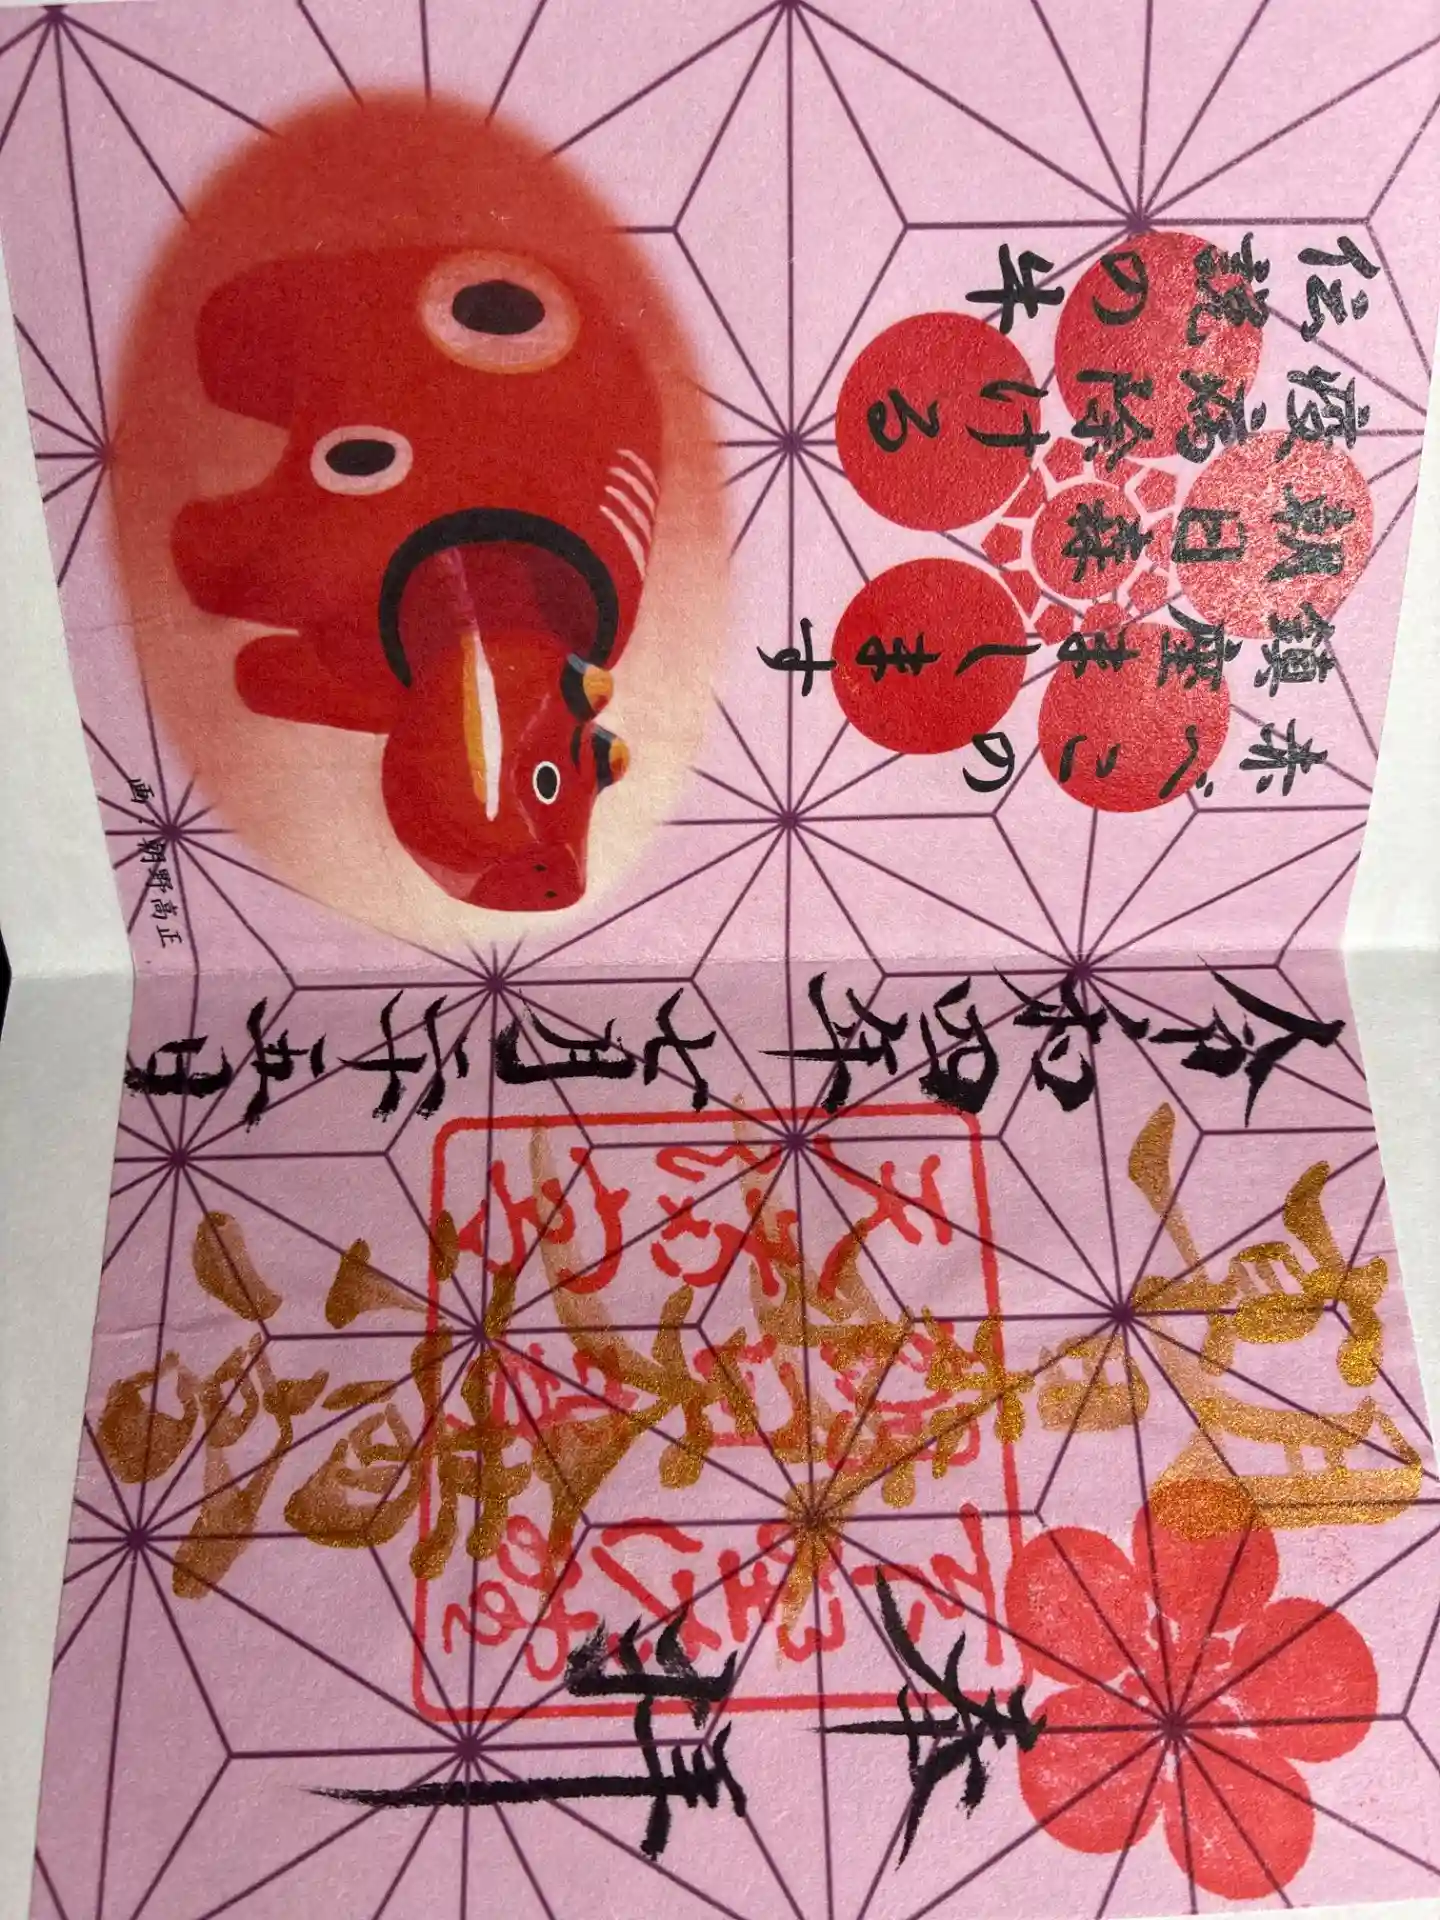 奉拝
朝日森天満宮
令和四年七月二十五日
赤べこの
鎮座まします
朝日森
疫病除ける
伝説の牛
画・朝野高正